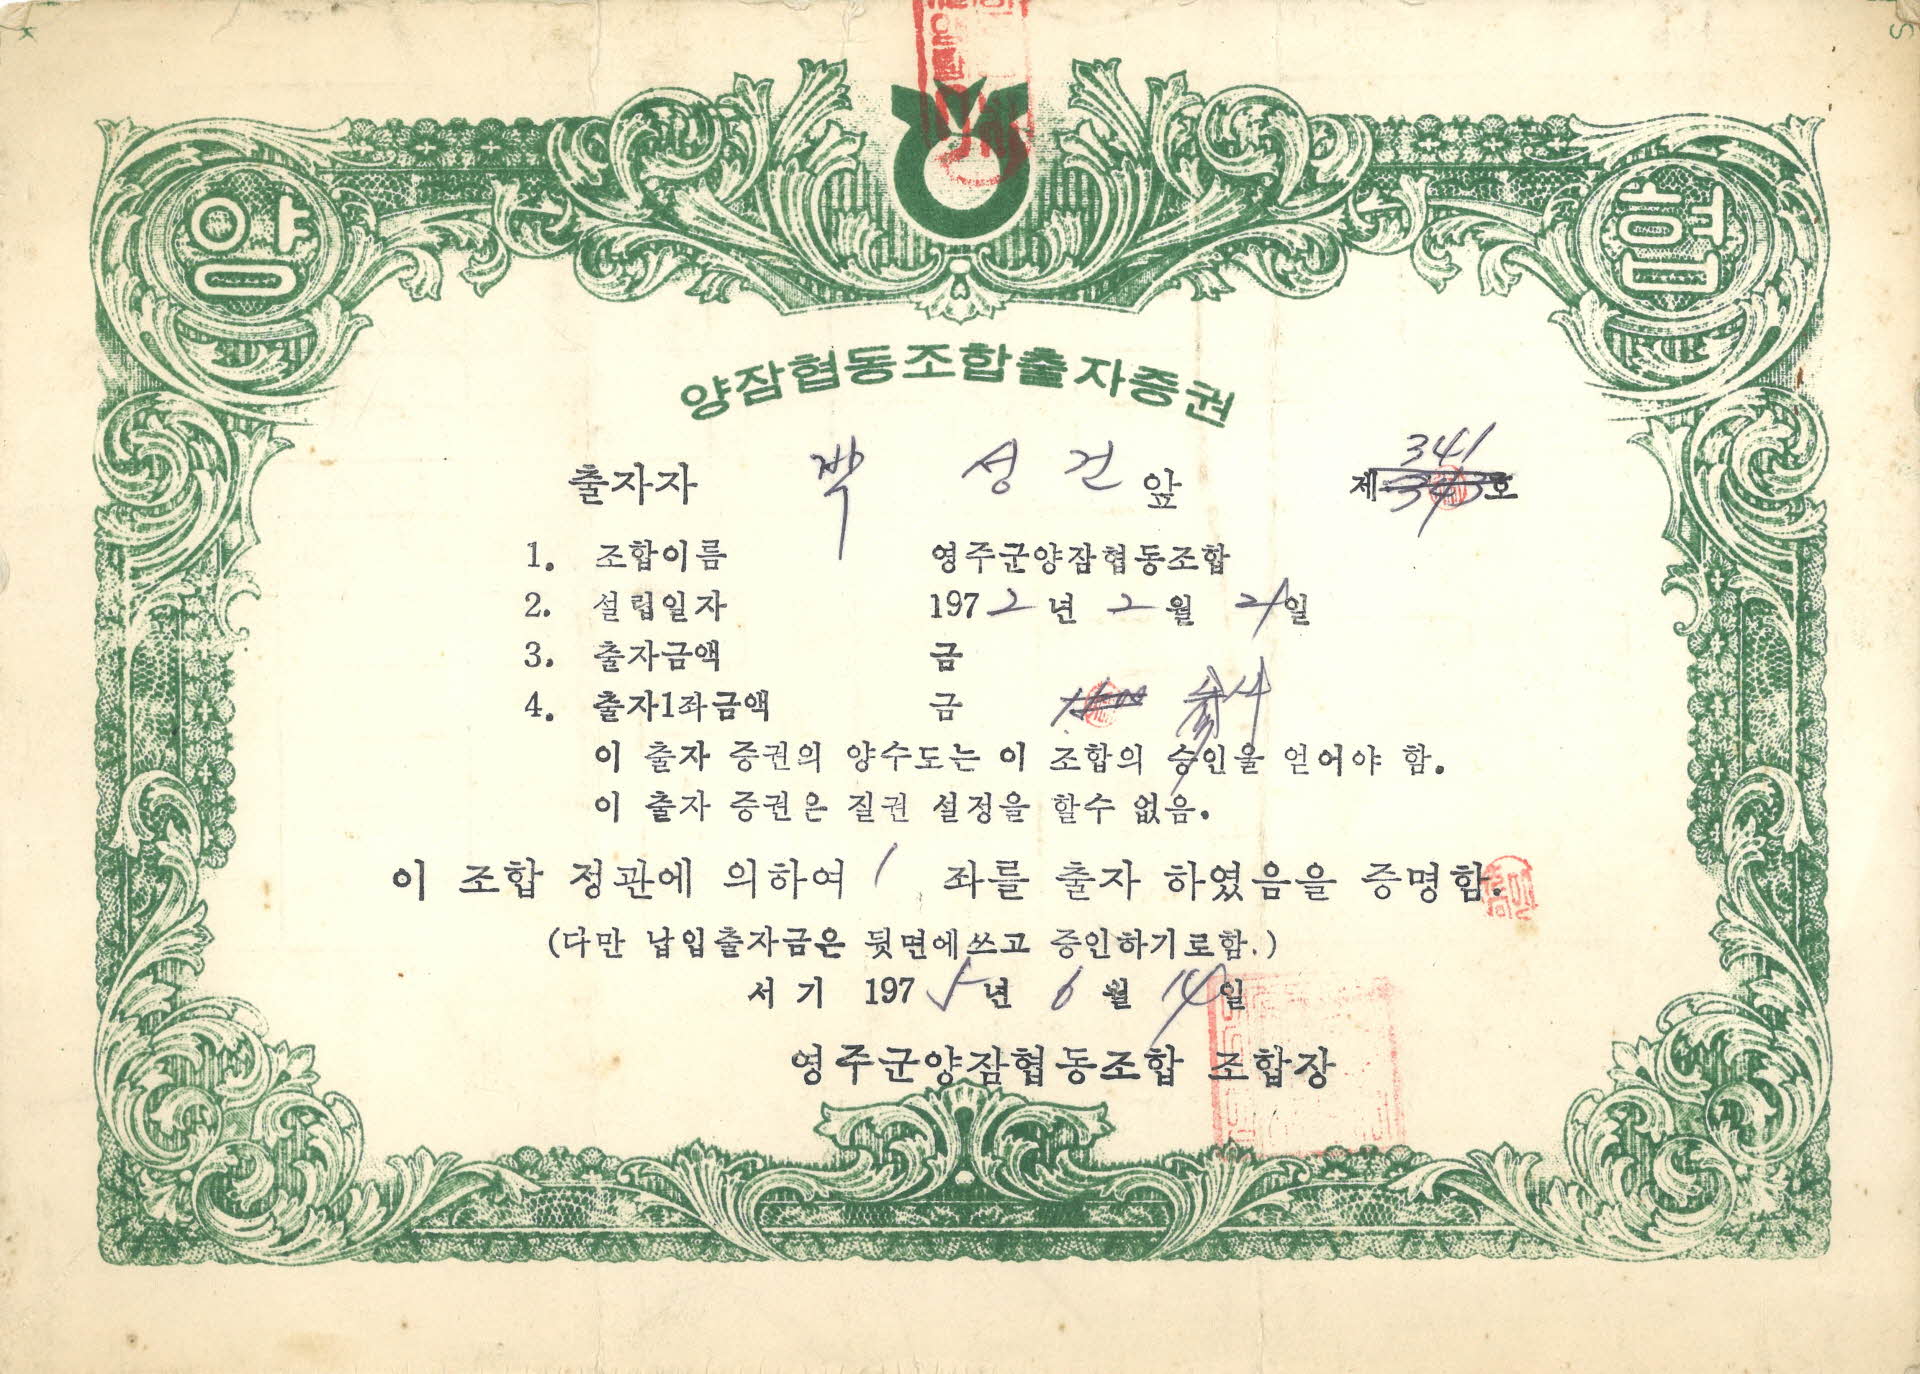 양 협
양잠협동조합출자증권
출자자 박 성 건 앞 제 341 호
1. 조합이름 영주군양잠협동조합
2. 설립일자 1972년 2월 21일
3. 출자금액 금
4. 출자1좌금액 금
이 출자 증권의 양수도는 이 조합의 승인을 얻어야 함.
이 출자 증권은 질권 설정을 할수 없음.
이 조합 정관에 의하여 1 좌를 출자 하였음을 증명함.
(다만 납입출자금은 뒷면에쓰고 증인하기로함.)
서기 1975년 6월 14일
영주군양잠협동조합 조합장